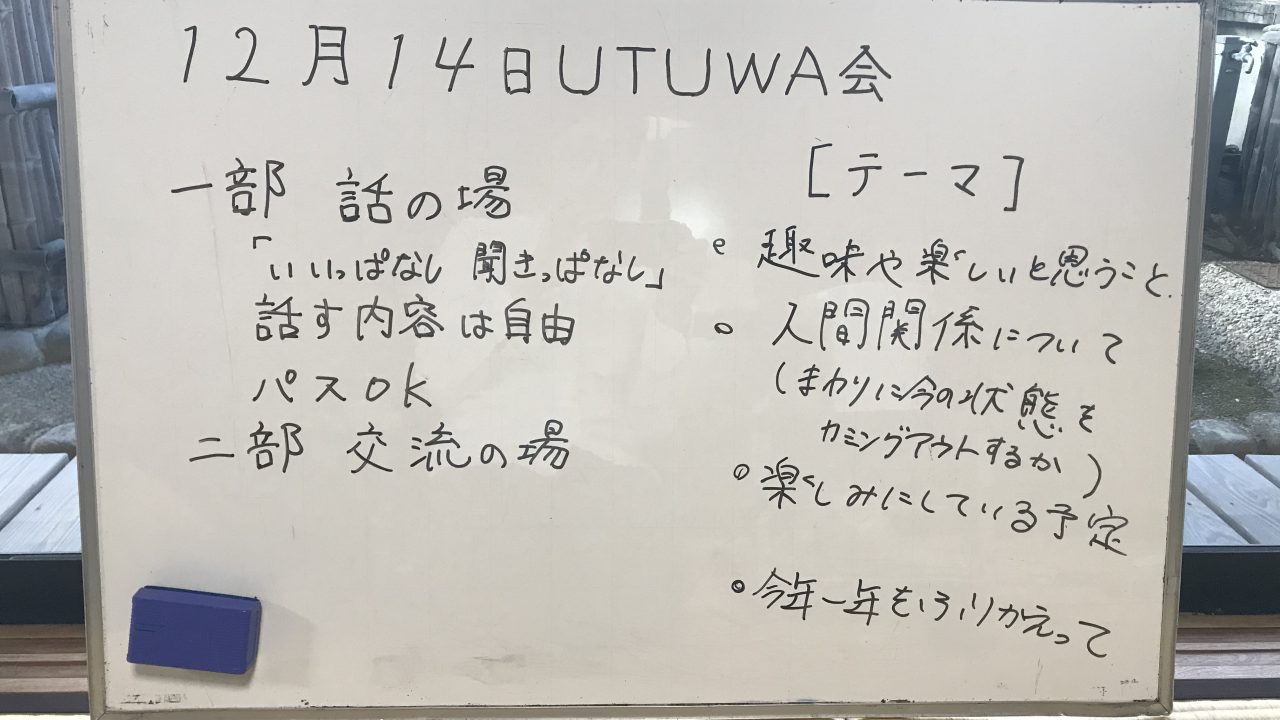 12月14日UTUWA会
一部 話の場
「いいっぱなし 聞きっぱなし」
話す内容は自由
パスok
二部 交流の場
[テーマ]
○趣味や楽しいと思うこと.
○人間関係について
(まわりに今の状態を
カミングアウトするか)
○楽しみにしている予定
○今年一年をふりかえって